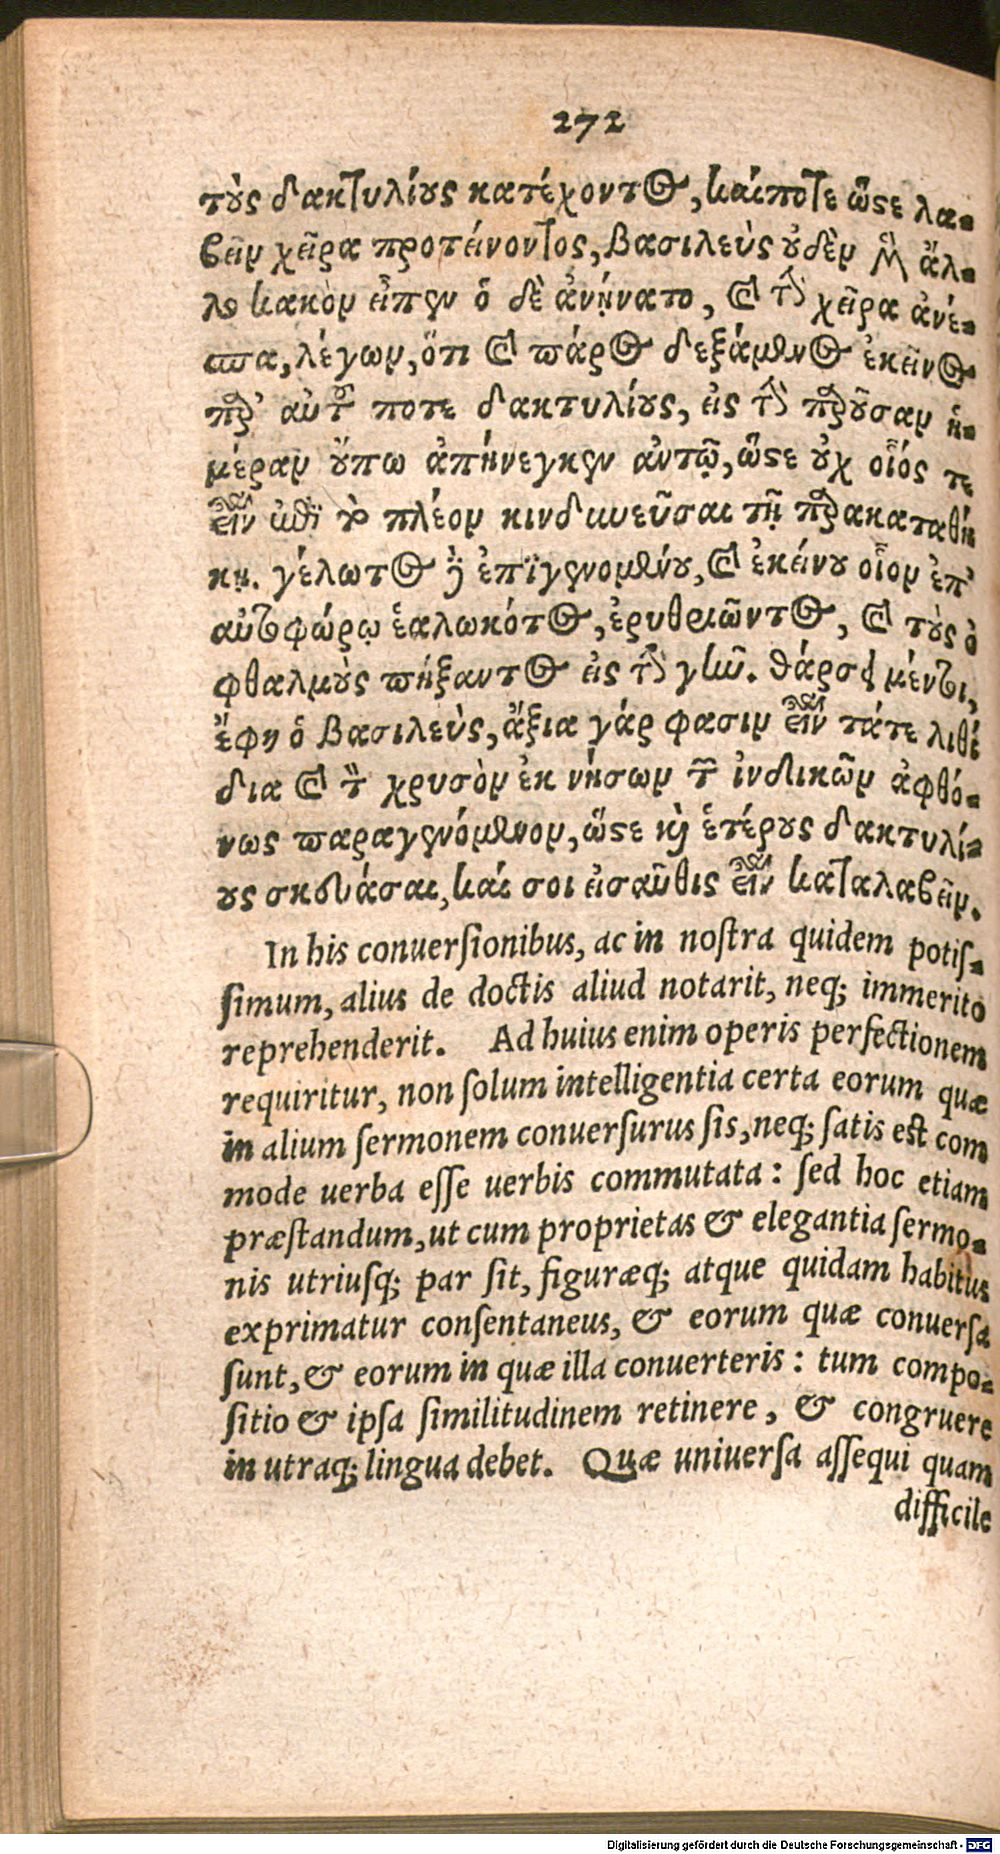 272
τοὺς δακτυλίους κατέχοντος, καίποτε ὥστε λα-
βεῖν χεῖρα προτείνοντος, βασιλεὺς οὐδὲν μὲν ἄλ-
λο κακὸν εἶπεν ὁ δὲ ἀνήνατο, καὶ τὴν χεῖρα ἀνέ-
σπα, λέγων, ὅτι καὶ πάρος δεξάμενος ἐκεῖνος
παρ' αὐτοῦ ποτε δακτυλίους, εἰς τὴν παροῦσαν ἡ-
μέραν οὔπω ἀπήνεγκεν αὐτῷ, ὥστε οὐχ οἷός τε
εἶναι ἐπὶ τὸ πλέον κινδυνεῦσαι τῇ παρακαταθή
κῃ. γέλωτος δὲ ἐπιγενομένου, καὶ ἐκείνου οἷον ἐπ'
αὐτοφώρῳ ἑαλωκότος, ἐρυθριῶντος, καὶ τοὺς ὀ
φθαλμοὺς πήξαντος εἰς τὴν γῆν. θάρσει μέντοι,
ἔφη ὁ βασιλεὺς, ἄξια γάρ φασιν εἶναι τάτε λιθί
δια καὶ τὸν χρυσὸν ἐκ νήσων τῶν ἰνδικῶν ἀφθό-
νως παραγενόμενον, ὥστε καὶ ἑτέρους δακτυλί-
ους σκευάσαι, καί σοι εἰσαῦθις εἶναι καταλαβεῖν.
In his conuersionibus, ac in nostra quidem potis-
simum, alius de doctis aliud notarit, neq; immerito
reprehenderit. Ad huius enim operis perfectionem
requiritur, non solum intelligentia certa eorum quæ
in alium sermonem conuersurus sis, neq; satis est com
mode uerba esse uerbis commutata: sed hoc etiam
præstandum, ut cum proprietas & elegantia sermo-
nis utriusq; par sit, figuræq; atque quidam habitus
exprimatur consentaneus, & eorum quæ conuersa
sunt, & eorum in quæ illa conuerteris: tum compo-
sitio & ipsa similitudinem retinere, & congruere
in utraq; lingua debet. Quæ uniuersa assequi quam
difficile
Digitalisierung gefördert durch die Deutsche Forschungsgemeinschaft - DFG